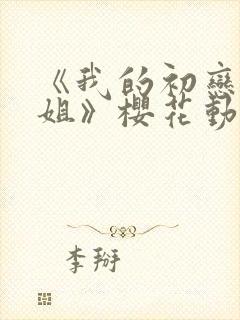 《我的初戀
姐》櫻花動
李掰